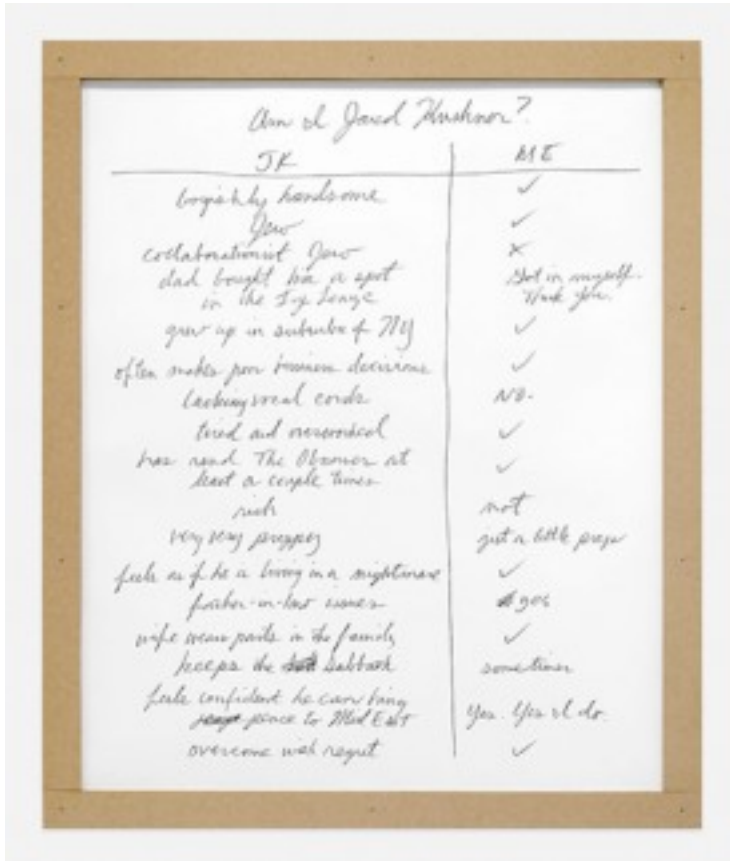 Am I Jared Kushner?
JK ME
boyishly handsome ✓
Jew ✓
collaborationist Jew ×
dad bought him a spot Got in myself.
in the Ivy League Thank you.
grew up in suburbs of NY ✓
often makes poor business decisions ✓
lacking vocal cords NO.
tired and overworked ✓
has read The Observer at ✓
least a couple times
rich not
very very preppy just a little preppy
feels as if he is living in a nightmare ✓
father-in-law issues yes
wife wears pants in the family ✓
keeps the sabbath sometimes
feels confident he can bring Yes. Yes I do.
peace to Mid East
overcome with regret ✓